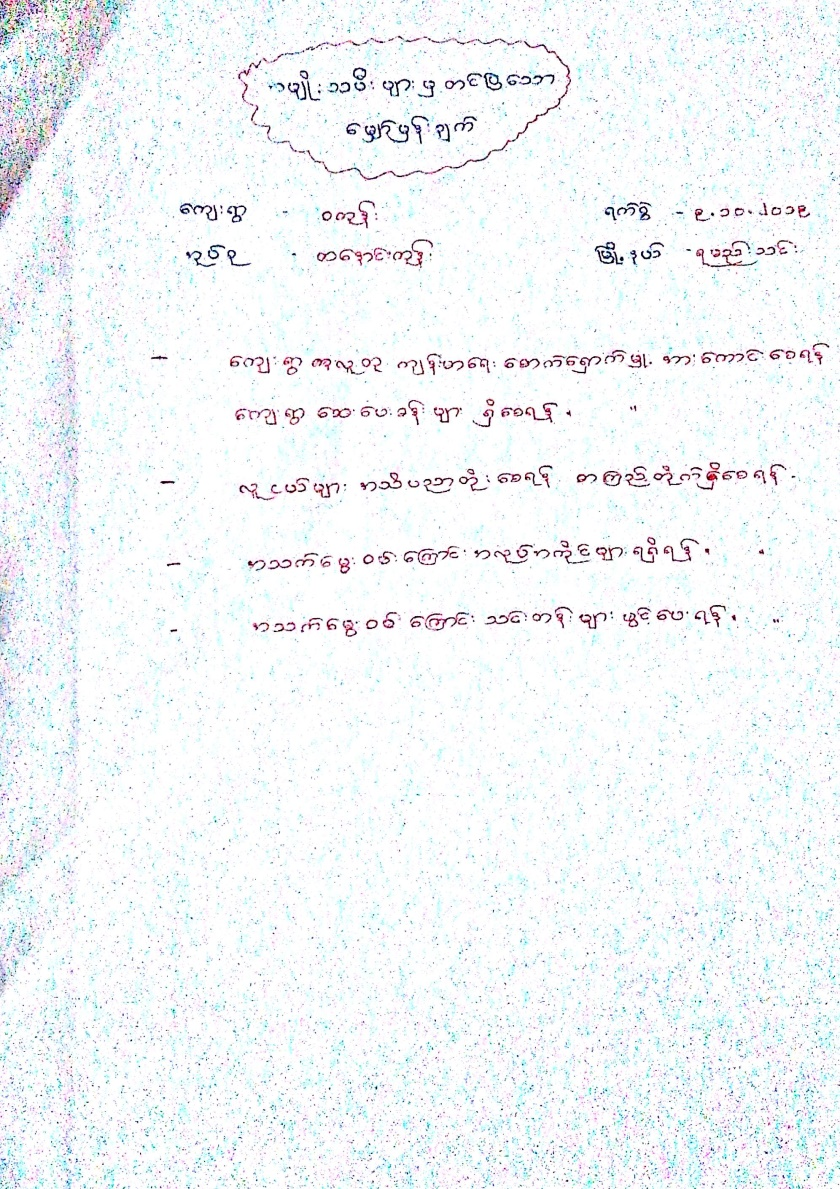 အမျိုးသမီးများမှ တင်ပြသော
မျှော်မှန်းချက်
ကျေးရွာ - ဝကုန်း ရက်စွဲ - ၉.၁၀.၂၀၁၉
အုပ်စု - တနောင်းကုန်း မြို့နယ် - ရမည်းသင်း
- ကျေးရွာ အလူထု ကျန်းမာရေး စောက်ရှောက်မှု အားကောင်းစေရန်
ကျေးရွာ ဆေးပေးခန်းများ ရှိစေရန်. "
- လူငယ်များ အသိပညာတိုးစေရန် စာကြည့်တိုက်ရှိစေရန်.
- အသက်မွေးဝမ်းကြောင်း အလုပ်အကိုင်များ ရရှိရန်.
- အသက်မွေးဝမ်းကြောင်း သင်တန်းများ ဖွင့်ပေးရန်. "